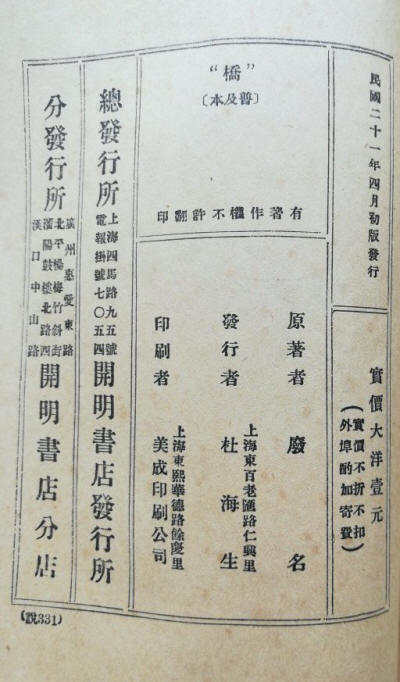 民國二十一年四月初版發行
實價大洋壹元
（實價不折不扣
外埠酌加寄費）
“橋”
〔普及本〕
有著作權不許翻印
原著者 廢名
發行者 杜海生
上海東百老匯路仁興里
印刷者 美成印刷公司
上海東熙華德路餘慶里
總發行所 開明書店發行所
上海四馬路九五號
電報掛號七〇五四
分發行所 開明書店分店
廣州惠愛東路
北平楊梅竹斜街
瀋陽鼓樓北路四
漢口中山路
(說331)